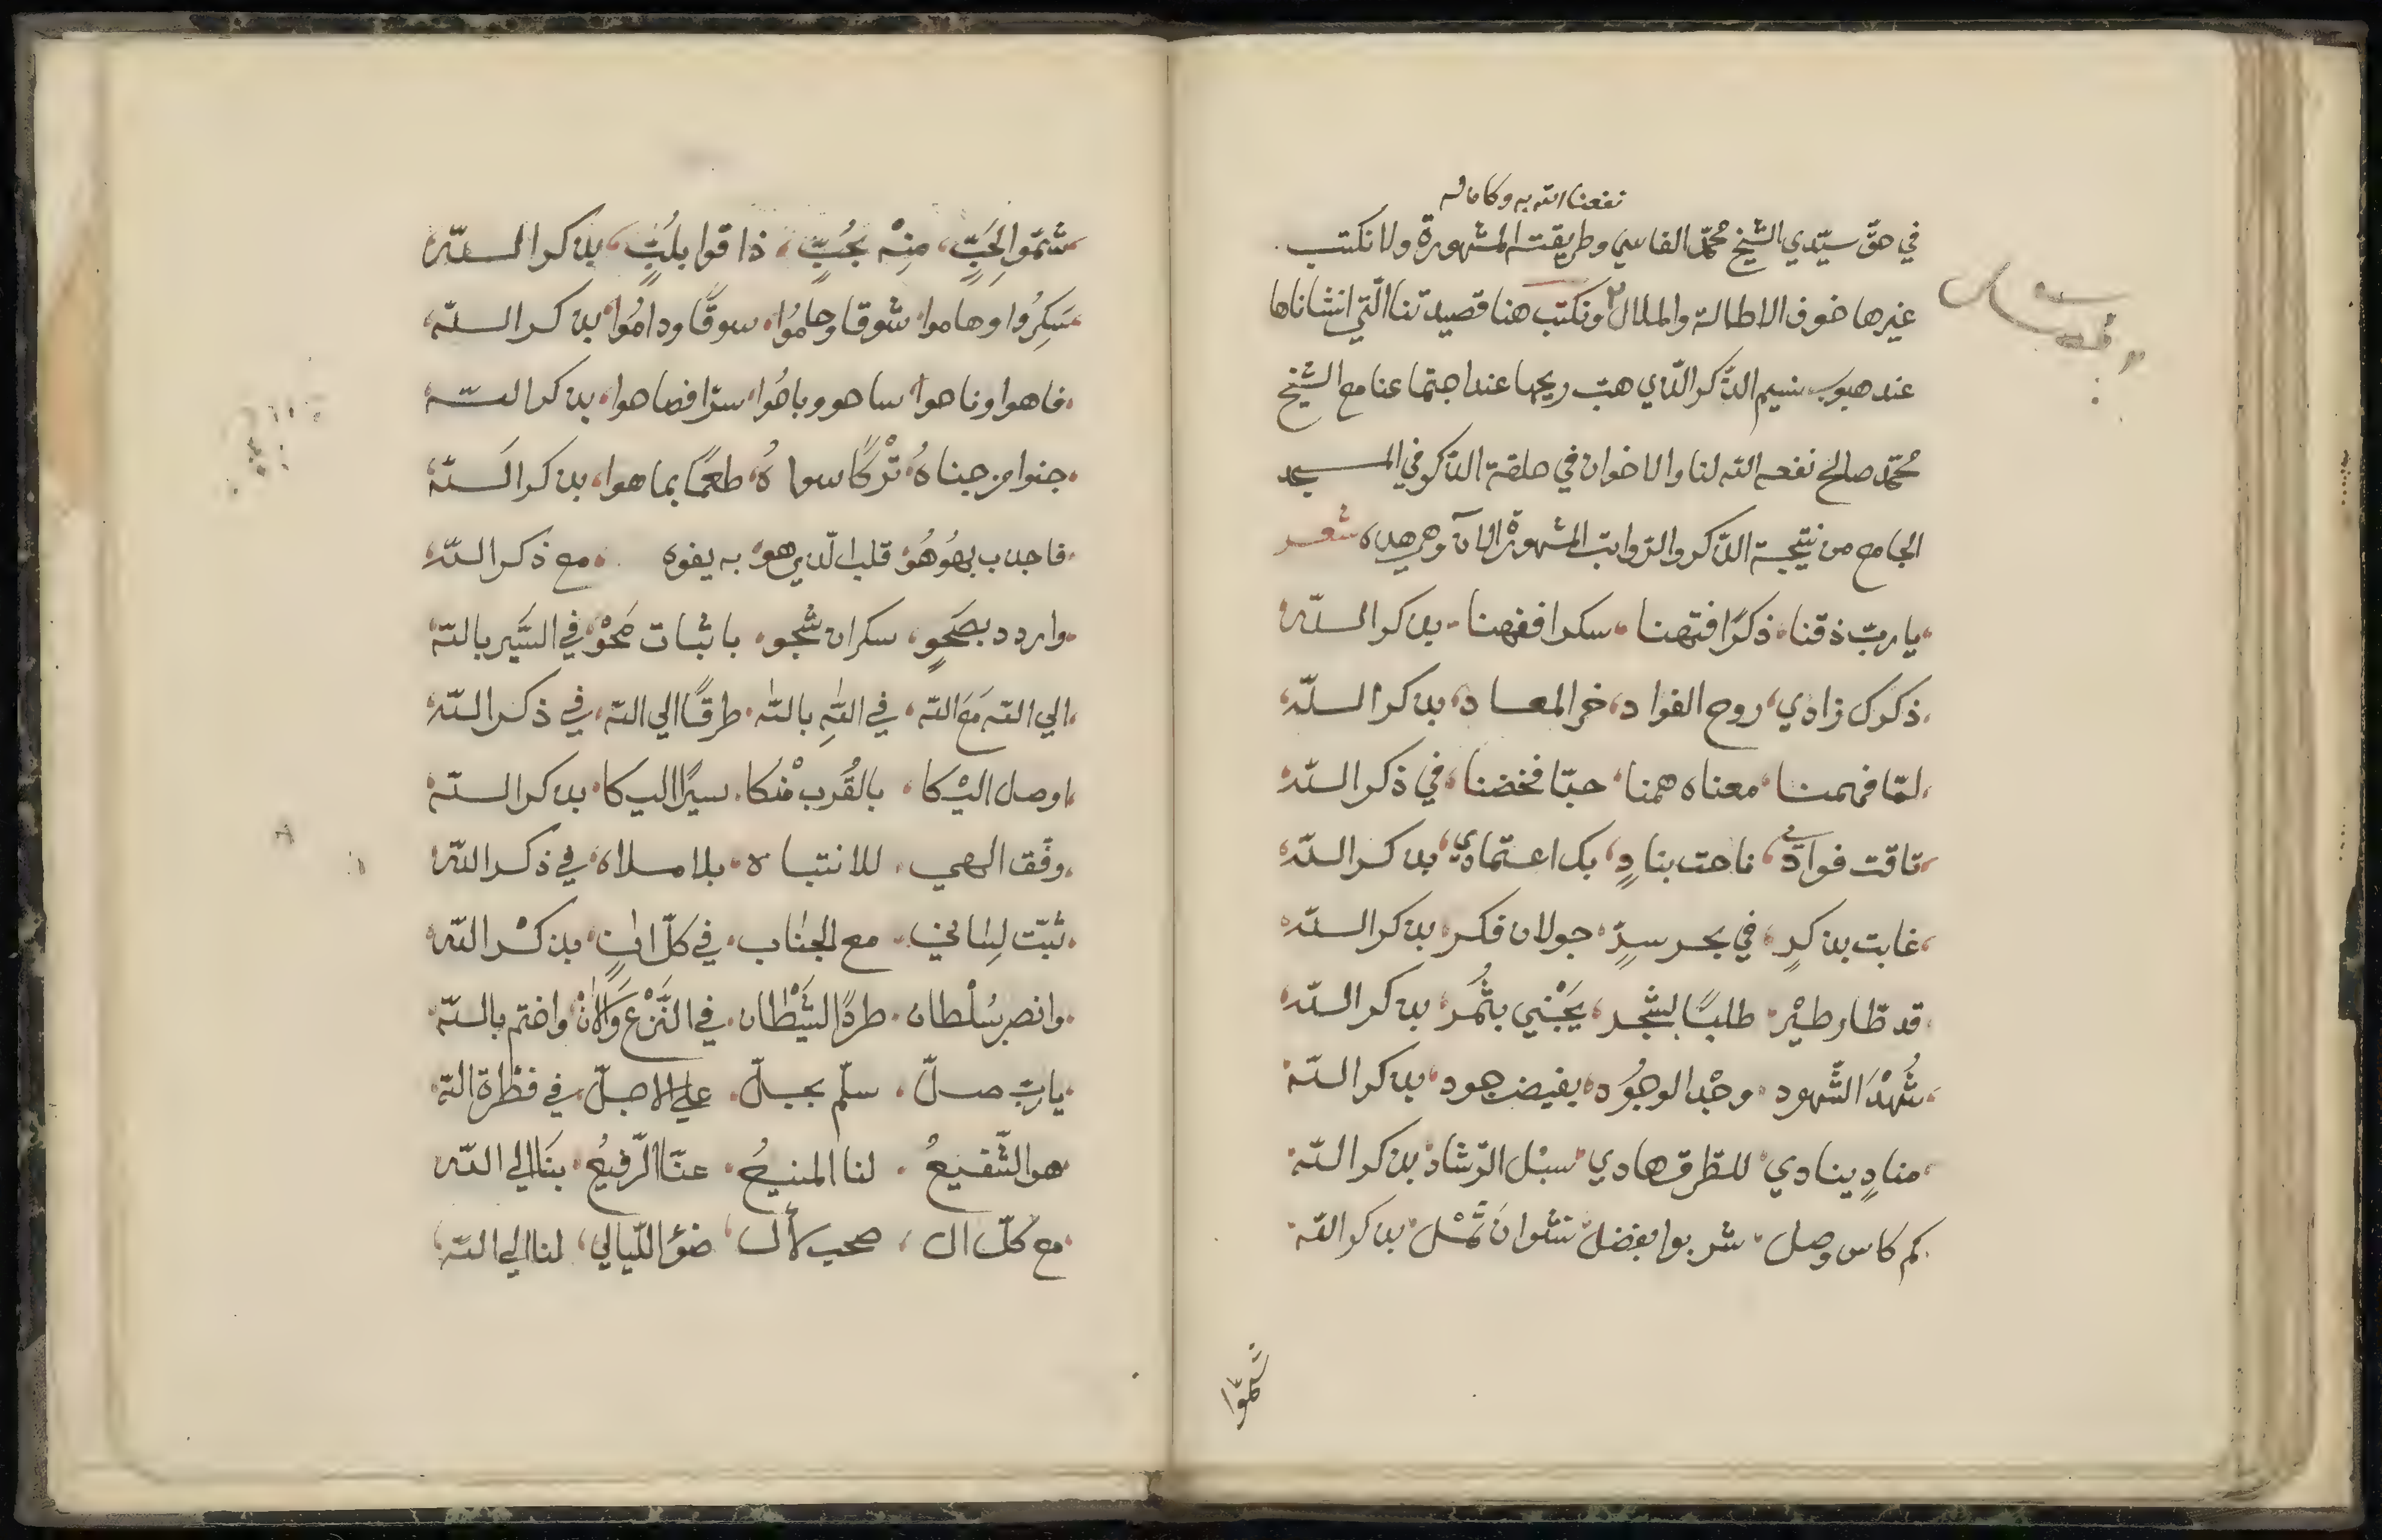 نفعنا الله به وكاماله
في حقّ سيّدي الشيخ محمّد الفاسي وطريقته المشهورة ولا نكتب
غيرها خوف الاطالة والملال ونكتب هنا قصيدتنا الّتي انشاناها
عند هبوب نسيم الذّكر الّذي هبّ ريحها عند اجتماعنا مع الشيخ
محمّد صالح نفعه الله لنا والاخوان في حلقة الذّكر في المسجد
الجامع من نتيجة الذّكر والرّواتب المشهورة الان وهي هذه شعر
يا ربّ ذقنا ذكرًا فتهنا سكرا ففهنا بذكر اللّه
ذكرك زادي روح الفواد خر المعاد بذكر اللّه
لمّا فهمنا معناه همنا حبّا فخضنا في ذكر اللّه
تاقت فوادي ناحت بنادٍ بك اعتمادي بذكر اللّه
غابت بذكرٍ في بحر سرٍّ جولان فكر بذكر اللّه
قد طار طيْر طلبًا لشجر يَجْني بثمُر بذكر اللّه
شُهْدَ الشّهود وجْد الوجُود بفيض جود بذكر اللّه
منادٍ ينادي للطرق هادي سبْل الرّشاد بذكر اللّه
كم كاس وصل شربوا بفضل نشوان ثَمْل بذكر اللّه
شمّوا
شمّوا لِحَبٍّ منِهْ بحُبٍّ ذاقوا بلُبٍّ بذكر اللّه
سَكِرُوا وهاموا شوقا وحامُوا سوقًا ودامُوا بذكر اللّه
فاهوا وناهوا ساهو وباهُوا سرّا فصاهوا بذكر اللّه
جنوا من جناهُ تْركًا سواهُ طعمًا بما هوا بذكر اللّه
فاجذب بهُوهُو قلب الّذي هو به يفوه مع ذكر اللّه
واردد بصَحٍو سكران شجو باثبات مَحْو في السَّير بالله
الي الله مَع الله في اللهِ بالله طرقًا الي الله في ذكر اللّه
اوصل اليْكا بالقُرب منْكا سيرًا اليكا بذكر اللّه
وفّق الهي للانتباه بلا ملاه في ذكر اللّه
ثبّت لِساني مع الجناب في كلّ انٍ بذكْر اللّه
وانصر سُلْطان طردًا لشَيْطان في النَّزْع وَالآنْ واختم باللّه
يا ربّ صلّ سلّم بجلّ علي الاجلّ في فطرة اللّه
هو الشّفيعُ لنا المنيعُ عنّا الرّفيعُ بنَا الي اللّه
مع كلّ ال صحب لأل ضوْ اللّيالي لنا الي اللّه